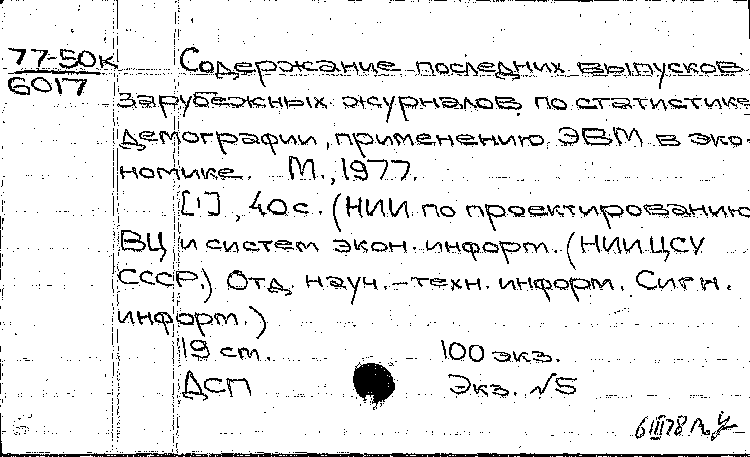 77-50к Содержание последних выпусков
6017 зарубежных журналов по статистике
демографии, применению ЭВМ в эко-
номике. М., 1977.
[1], 40с. (НИИ по проектированию
ВЦ и систем экон. информ. (НИИ ЦСУ
СССР.) Отд. науч.-техн. информ. Сигн.
информ.)
19 см. 100 экз.
ДСП Экз. №5
6 III 78